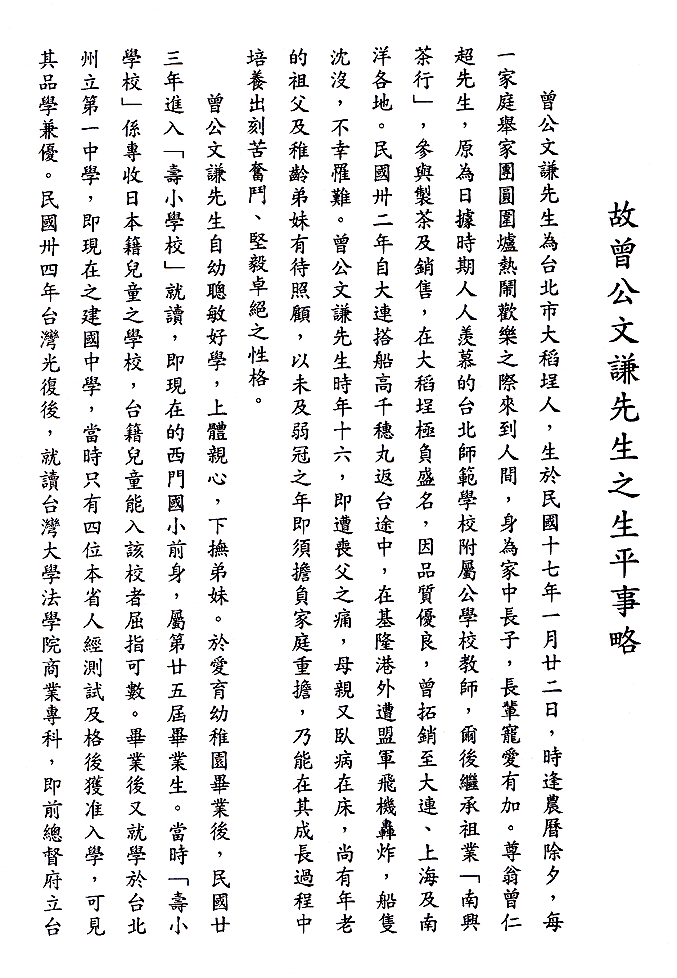 故曾公文謙先生之生平事略
曾公文謙先生為台北市大稻埕人，生於民國十七年一月廿二日，時逢農曆除夕，每
一家庭舉家團圓圍爐熱鬧歡樂之際來到人間，身為家中長子，長輩寵愛有加。尊翁曾仁
超先生，原為日據時期人人羨慕的台北師範學校附屬公學校教師，爾後繼承祖業「南興
茶行」，參與製茶及銷售，在大稻埕極負盛名，因品質優良，曾拓銷至大連、上海及南
洋各地。民國卅二年自大連搭船高千穗丸返台途中，在基隆港外遭盟軍飛機轟炸，船隻
沈沒，不幸罹難。曾公文謙先生時年十六，即遭喪父之痛，母親又臥病在床，尚有年老
的祖父及稚齡弟妹有待照顧，以未及弱冠之年即須擔負家庭重擔，乃能在其成長過程中
培養出刻苦奮鬥、堅毅卓絕之性格。
曾公文謙先生自幼聰敏好學，上體親心，下撫弟妹。於愛育幼稚園畢業後，民國廿
三年進入「壽小學校」就讀，即現在的西門國小前身，屬第廿五屆畢業生。當時「壽小
學校」係專收日本籍兒童之學校，台籍兒童能入該校者屈指可數。畢業後又就學於台北
州立第一中學，即現在之建國中學，當時只有四位本省人經測試及格後獲准入學，可見
其品學兼優。民國卅四年台灣光復後，就讀台灣大學法學院商業專科，即前總督府立台